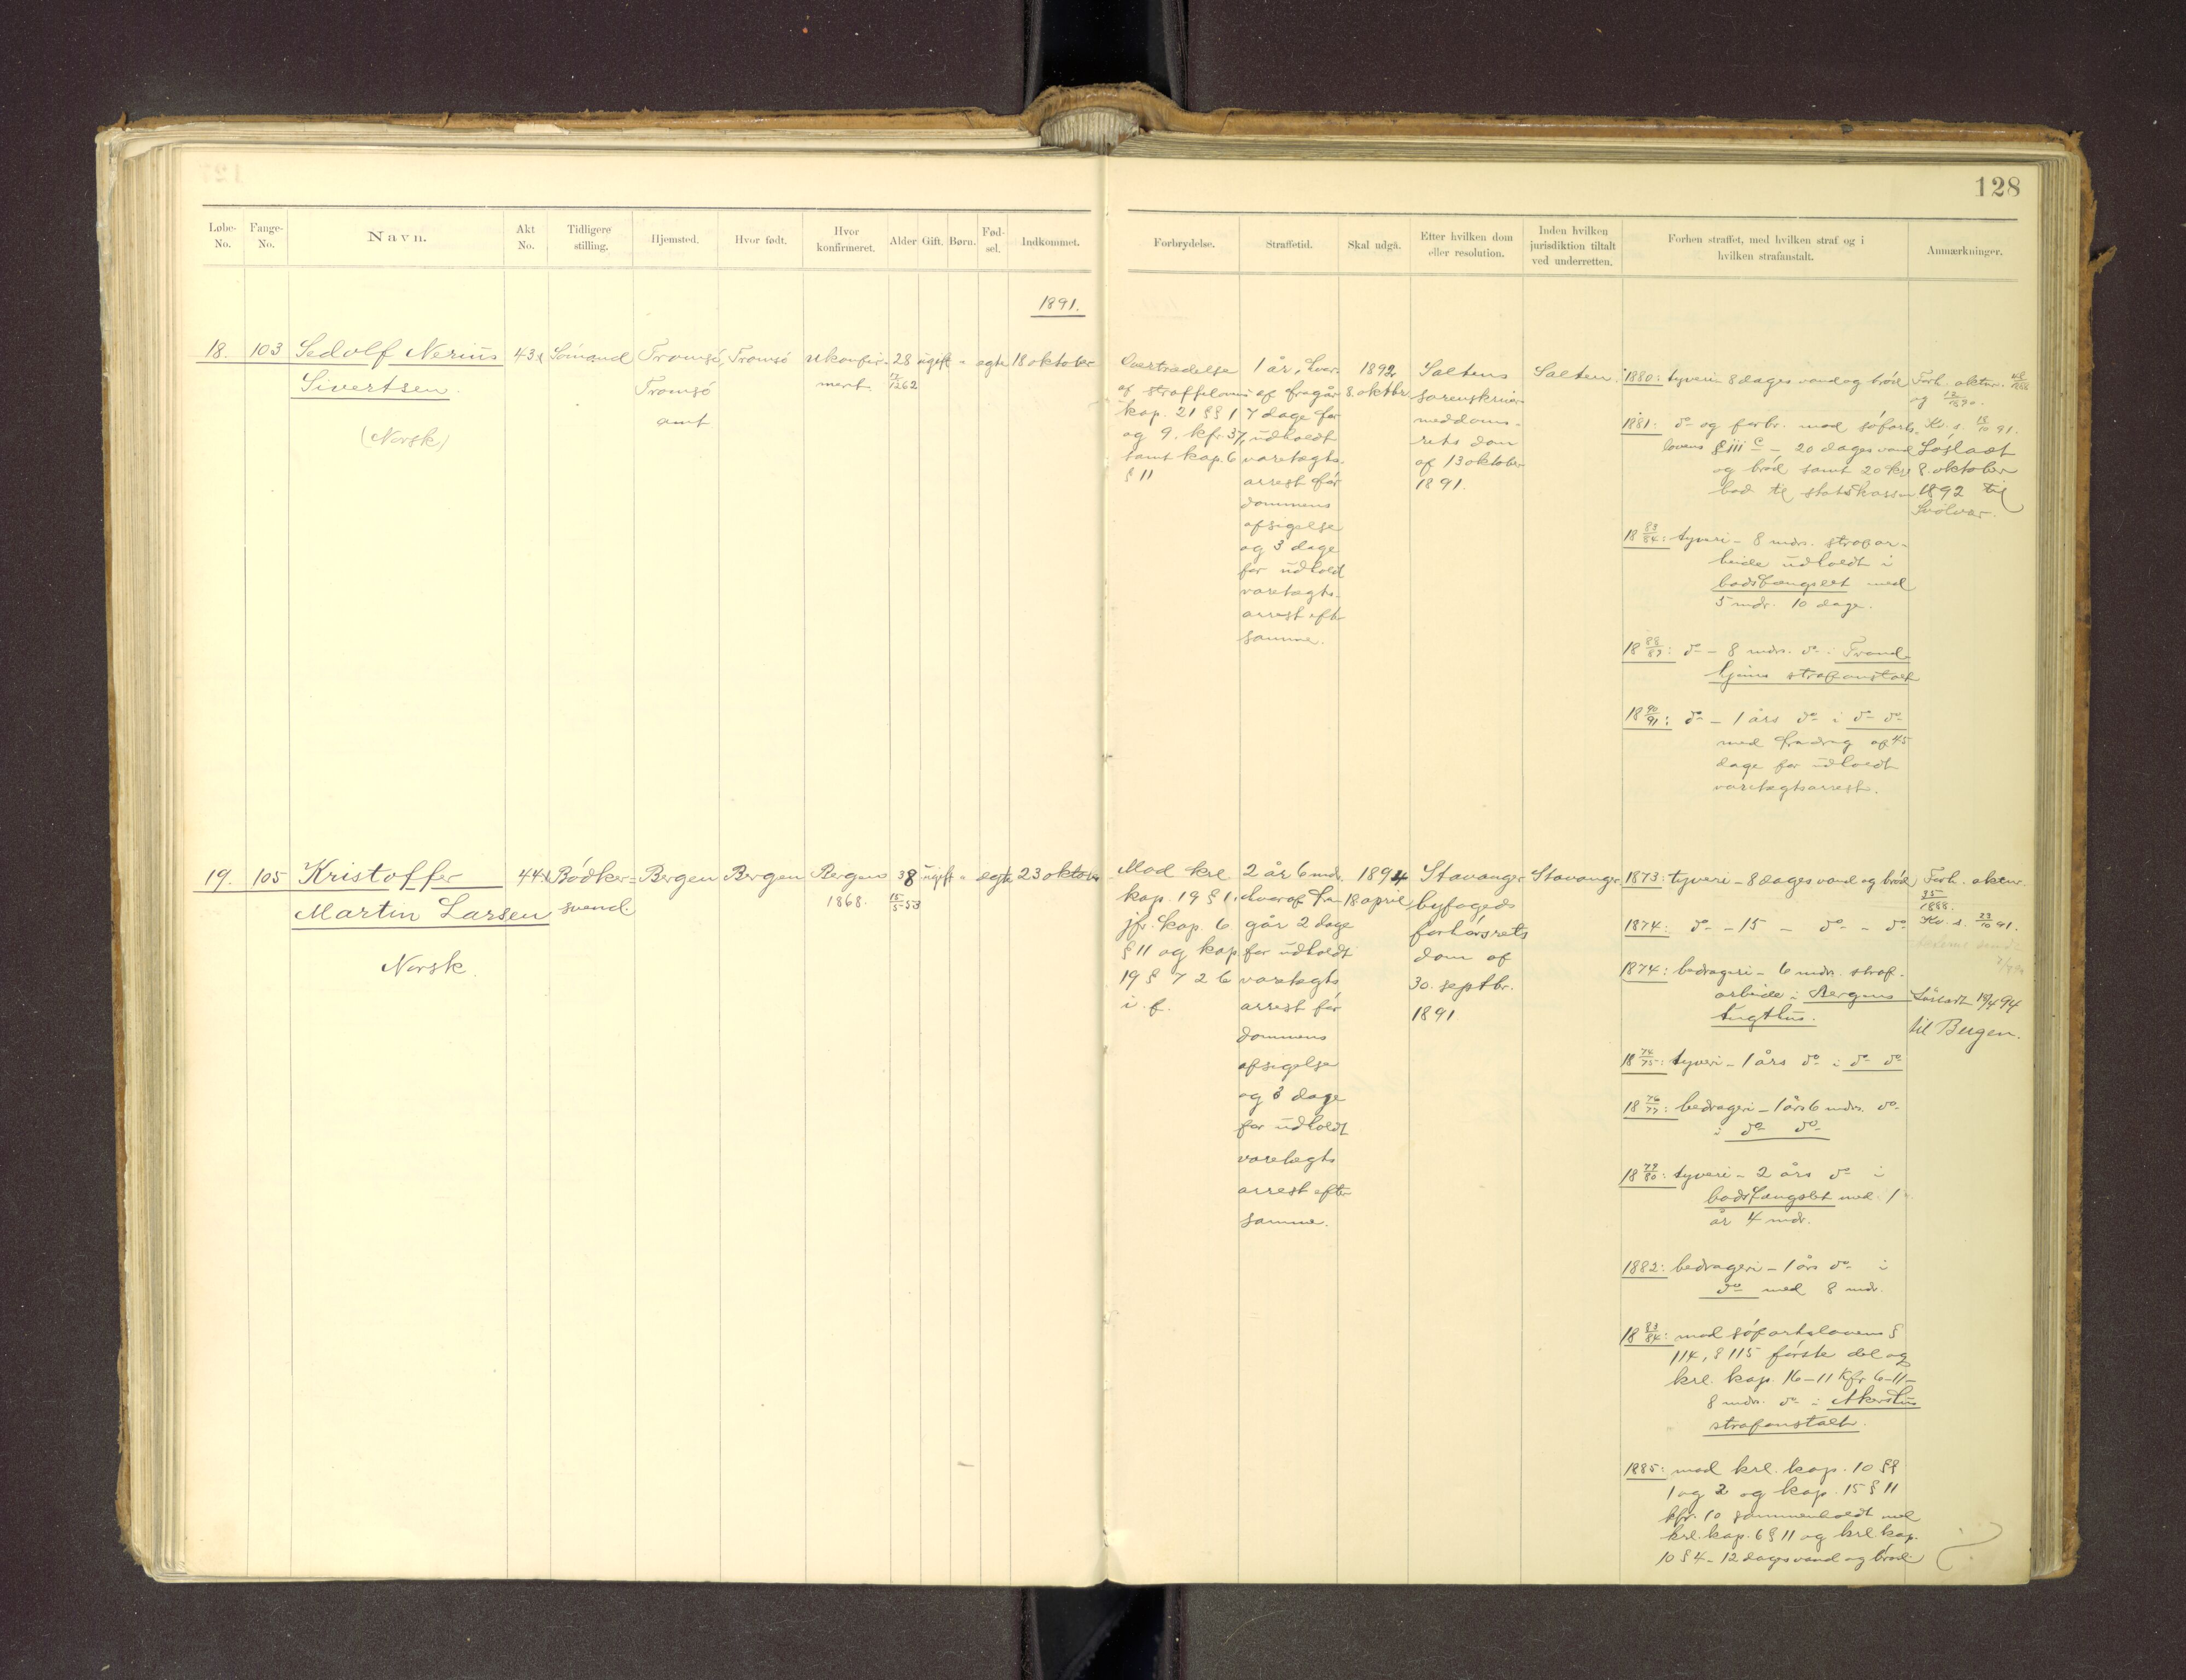 128
Løbe-No.
Fange-No.
Navn.
Akt No.
Tidligere stilling.
Hjemsted.
Hvor født.
Hvor konfirmeret.
Alder
Gift.
Børn.
Fød-sel.
Indkommet.
Forbrydelse.
Straffetid.
Skal udgå.
Efter hvilken dom eller resolution.
Inden hvilken jurisdiktion tiltalt ved underretten.
Forhen straffet, med hvilken straf og i hvilken strafanstalt.
Anmærkninger.
1891.
18.
103
Sedolf Nerius
Sivertsen.
(Norsk)
Sömand
Tromsö,
Tromsö
amt
Tromsö
ukonfir-
meret.
28
ugift
"
egte
18 oktober
Overtrædelse
af straffeloven
kap. 21 §§ 1
og 9. kfr. 37,
samt kap. 6
§ 11
1 år, hvor-
af fragår
7 dage for
udholdt
varetægts-
arrest för
dommens
afsigelse
og 3 dage
for udholdt
varetægts-
arrest eftr
samme.
1892
8. oktbr.
Saltens
sorenskriver-
meddoms-
rets dom
af 13 oktober
1891.
Salten.
1880: tyveri 8 dages vand og bröd
1881: do og forbr. mod söfarts-
lovens § 111 c - 20 dages vand
og bröd samt 20 kr
bod til statskassen
18 83/84: tyveri - 8 mdrs. strafar-
beide udholdt i
bodsfængslet med
5 mdr. 10 dage.
18 88/89: do - 8 mdrs. do i Trond-
hjems strafanstalt
18 90/91: do - 1 års do i do do
med fradrag af 45
dage for udholdt
varetægtsarrest.
Forh. aktnr.
og
Kv. s. 18/10 91.
Lösladt
8. oktober
1892 til
Svolvær.
19.
105
Kristoffer
Martin Larsen
Norsk.
Bödker-
svend.
Bergen
Bergen
Bergen
1868.
38
15/5 53
ugift
"
egte
23 oktober
Mod krl
kap. 19 § 1,
jfr. kap. 6
§ 11 og kap
19 § 7 2 b
i. f.
2 år 6 mdr.
hvoraf fra-
går 2 dage
for udholdt
varetægts
arrest för
dommens
afsigelse
og 3 dage
for udholdt
varetægts
arrest efter
samme.
1894
18 april
Stavanger
byfogeds
forhörsrets
dom af
30. septbr.
1891
Stavanger
1873: tyveri - 8 dages vand og bröd
1874: do - 15 - do - do
1874: bedrageri - 6 mdr. straf-
arbeide i Bergens
tugthus.
18 74/75: tyveri - 1 års do i do do
18 76/77: bedrageri - 1 års 6 mdrs. do
i do do
18 79/80: tyveri - 2 års do i
bodsfængslet med 1
år 4 mdr.
1882: bedrageri - 1 års do i
do med 8 mdr.
18 83/84: mod söfartslovens §
114, § 115 förste del og
krl. kap. 16-11 kfr 6-11-
8 mdrs. do i Akershus
strafanstalt.
1885: mod krl. kap. 10 §§
1 og 2 og kap. 15 § 11
kfr. 10 sammenholdt med
krl. kap. 6 § 11 og krl. kap.
10 § 4 - 12 dages vand og bröd
Forh. aktnr.
35/1888.
Kv. s. 23/10 91.
Lösladt 18/4 94
til Bergen.